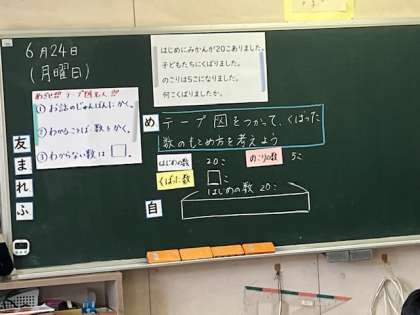 6月24日
(月曜日)
はじめにみかんが20こありました。
子どもたちにくばりました。
のこりは5こになりました。
何こくばりましたか。
めざせ!! テープ図名人!!!
① お話のじゅんばんにかく。
② わかることば、数をかく。
③ わからない数は□。
め テープ図をつかって、くばった
数のもとめ方を考えよう
はじめの数 20こ のこりの数 5こ
くばった数 □こ
はじめの数 20こ
友
ま
れ
ふ
自